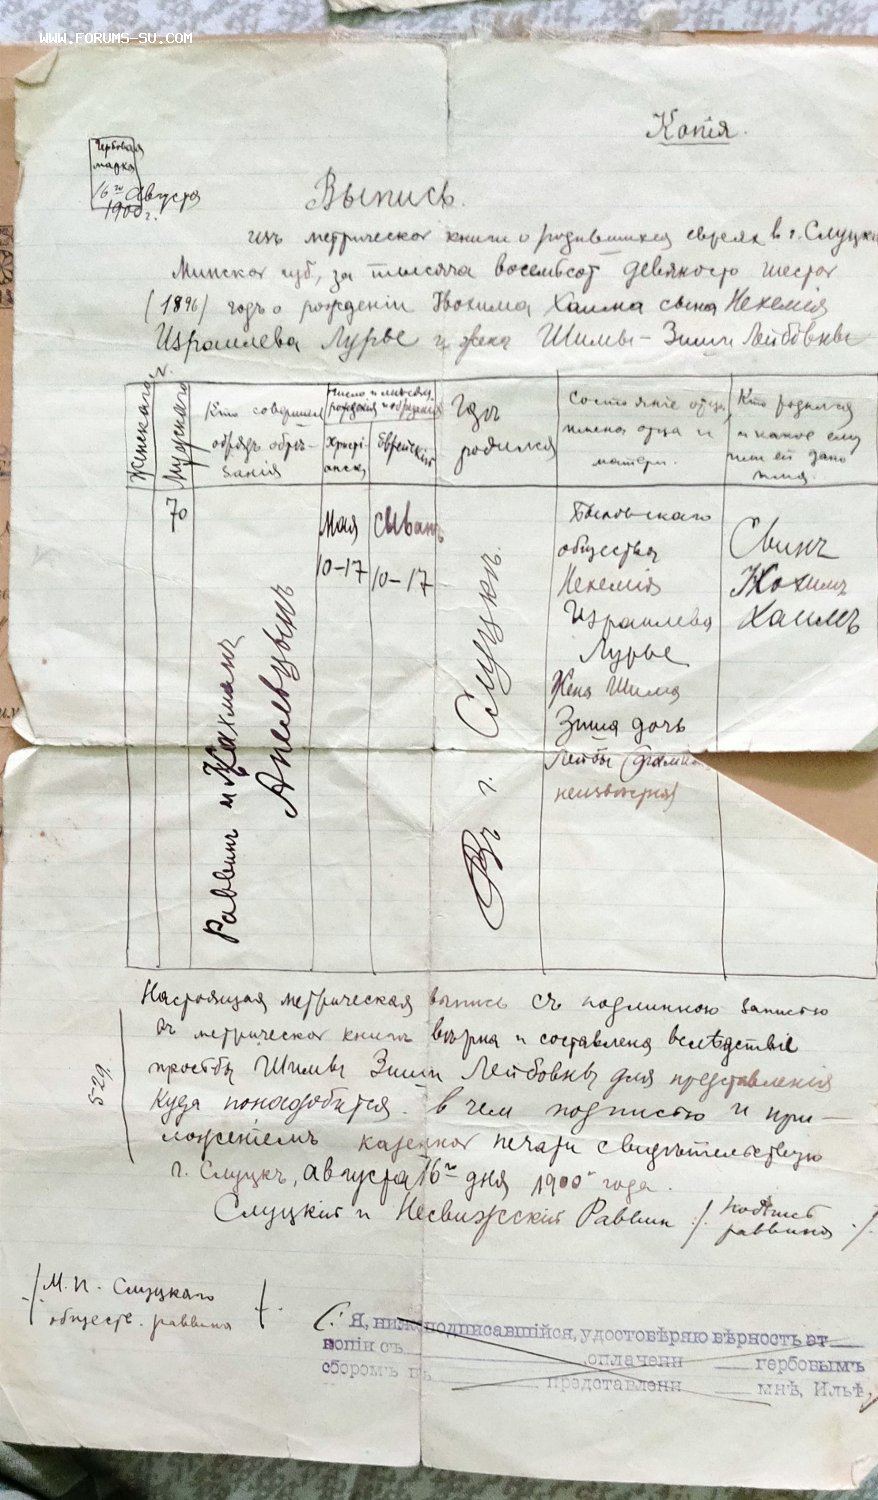 WWW.FORUMS-SU.COM
Копія.
Гербовая
марка
16го Августа
1900 г.
Выпись.
изъ метрической книги о родившихся евреях в г. Слуцкѣ
Минской губ., за тысяча восемьсот девяносто шестой
(1896) годъ о рожденіи Іохима Хаима сына Нехемія
Израилева Лурье и жена Шимы-Зиши Лейбовны
N.
Женскаго
Мужскаго
Кто совершил
обрядъ обрѣ-
занія
Число и мѣсяцъ
рожденія и обрѣзанія
Христі-
анск.
Еврейскій
Гдѣ
родился
Состояніе отца,
имена отца и
матери.
Кто родился
и какое ему
или ей дано
имя.
70
Раввинъ и
Апельцынъ
Мая
10-17
Сиванъ
10-17
Въ г. Слуцкѣ.
общества
Нехемія
Израилева
Лурье
Жена Шима
Зиша дочь
Лейбы (фамилія
неизвѣстна)
Сынъ
Іохимъ
Хаимъ
Настоящая метрическая выпись съ подлинною записью
въ метрической книгѣ вѣрна и составлена вслѣдствіе
просьбы Шимы Зиши Лейбовны для представленія
куда понадобится. В чем подписью и при-
ложеніемъ казенной печати свидѣтельствую
г. Слуцкъ, августа 16го дня 1900 года.
529.
Слуцкій и Несвижскій Раввин /. подпись
раввина ./.
М. П. Слуцкаго
обществ. раввина
Я, нижеподписавшійся, удостовѣряю вѣрность эт
копіи съ оплачени гербовымъ
сборомъ въ представлени мнѣ, Ильѣ